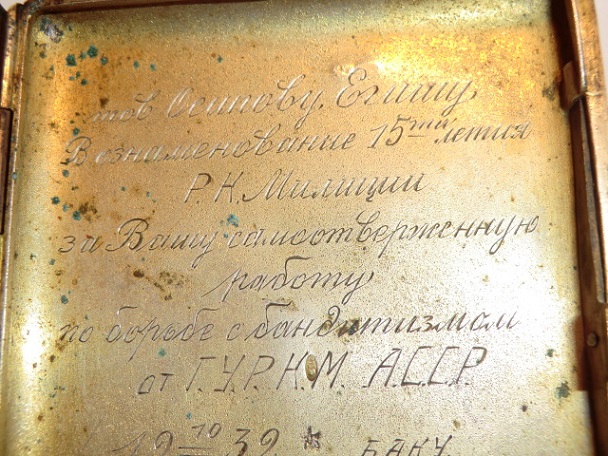 тов Осипову. Егишу
В ознаменование 15ти летия
Р.К. Милиции
за Вашу самоотверженную
работу
по борьбе с бандитизмом
от Г.У.Р.К.М. А.С.С.Р.
БАКУ